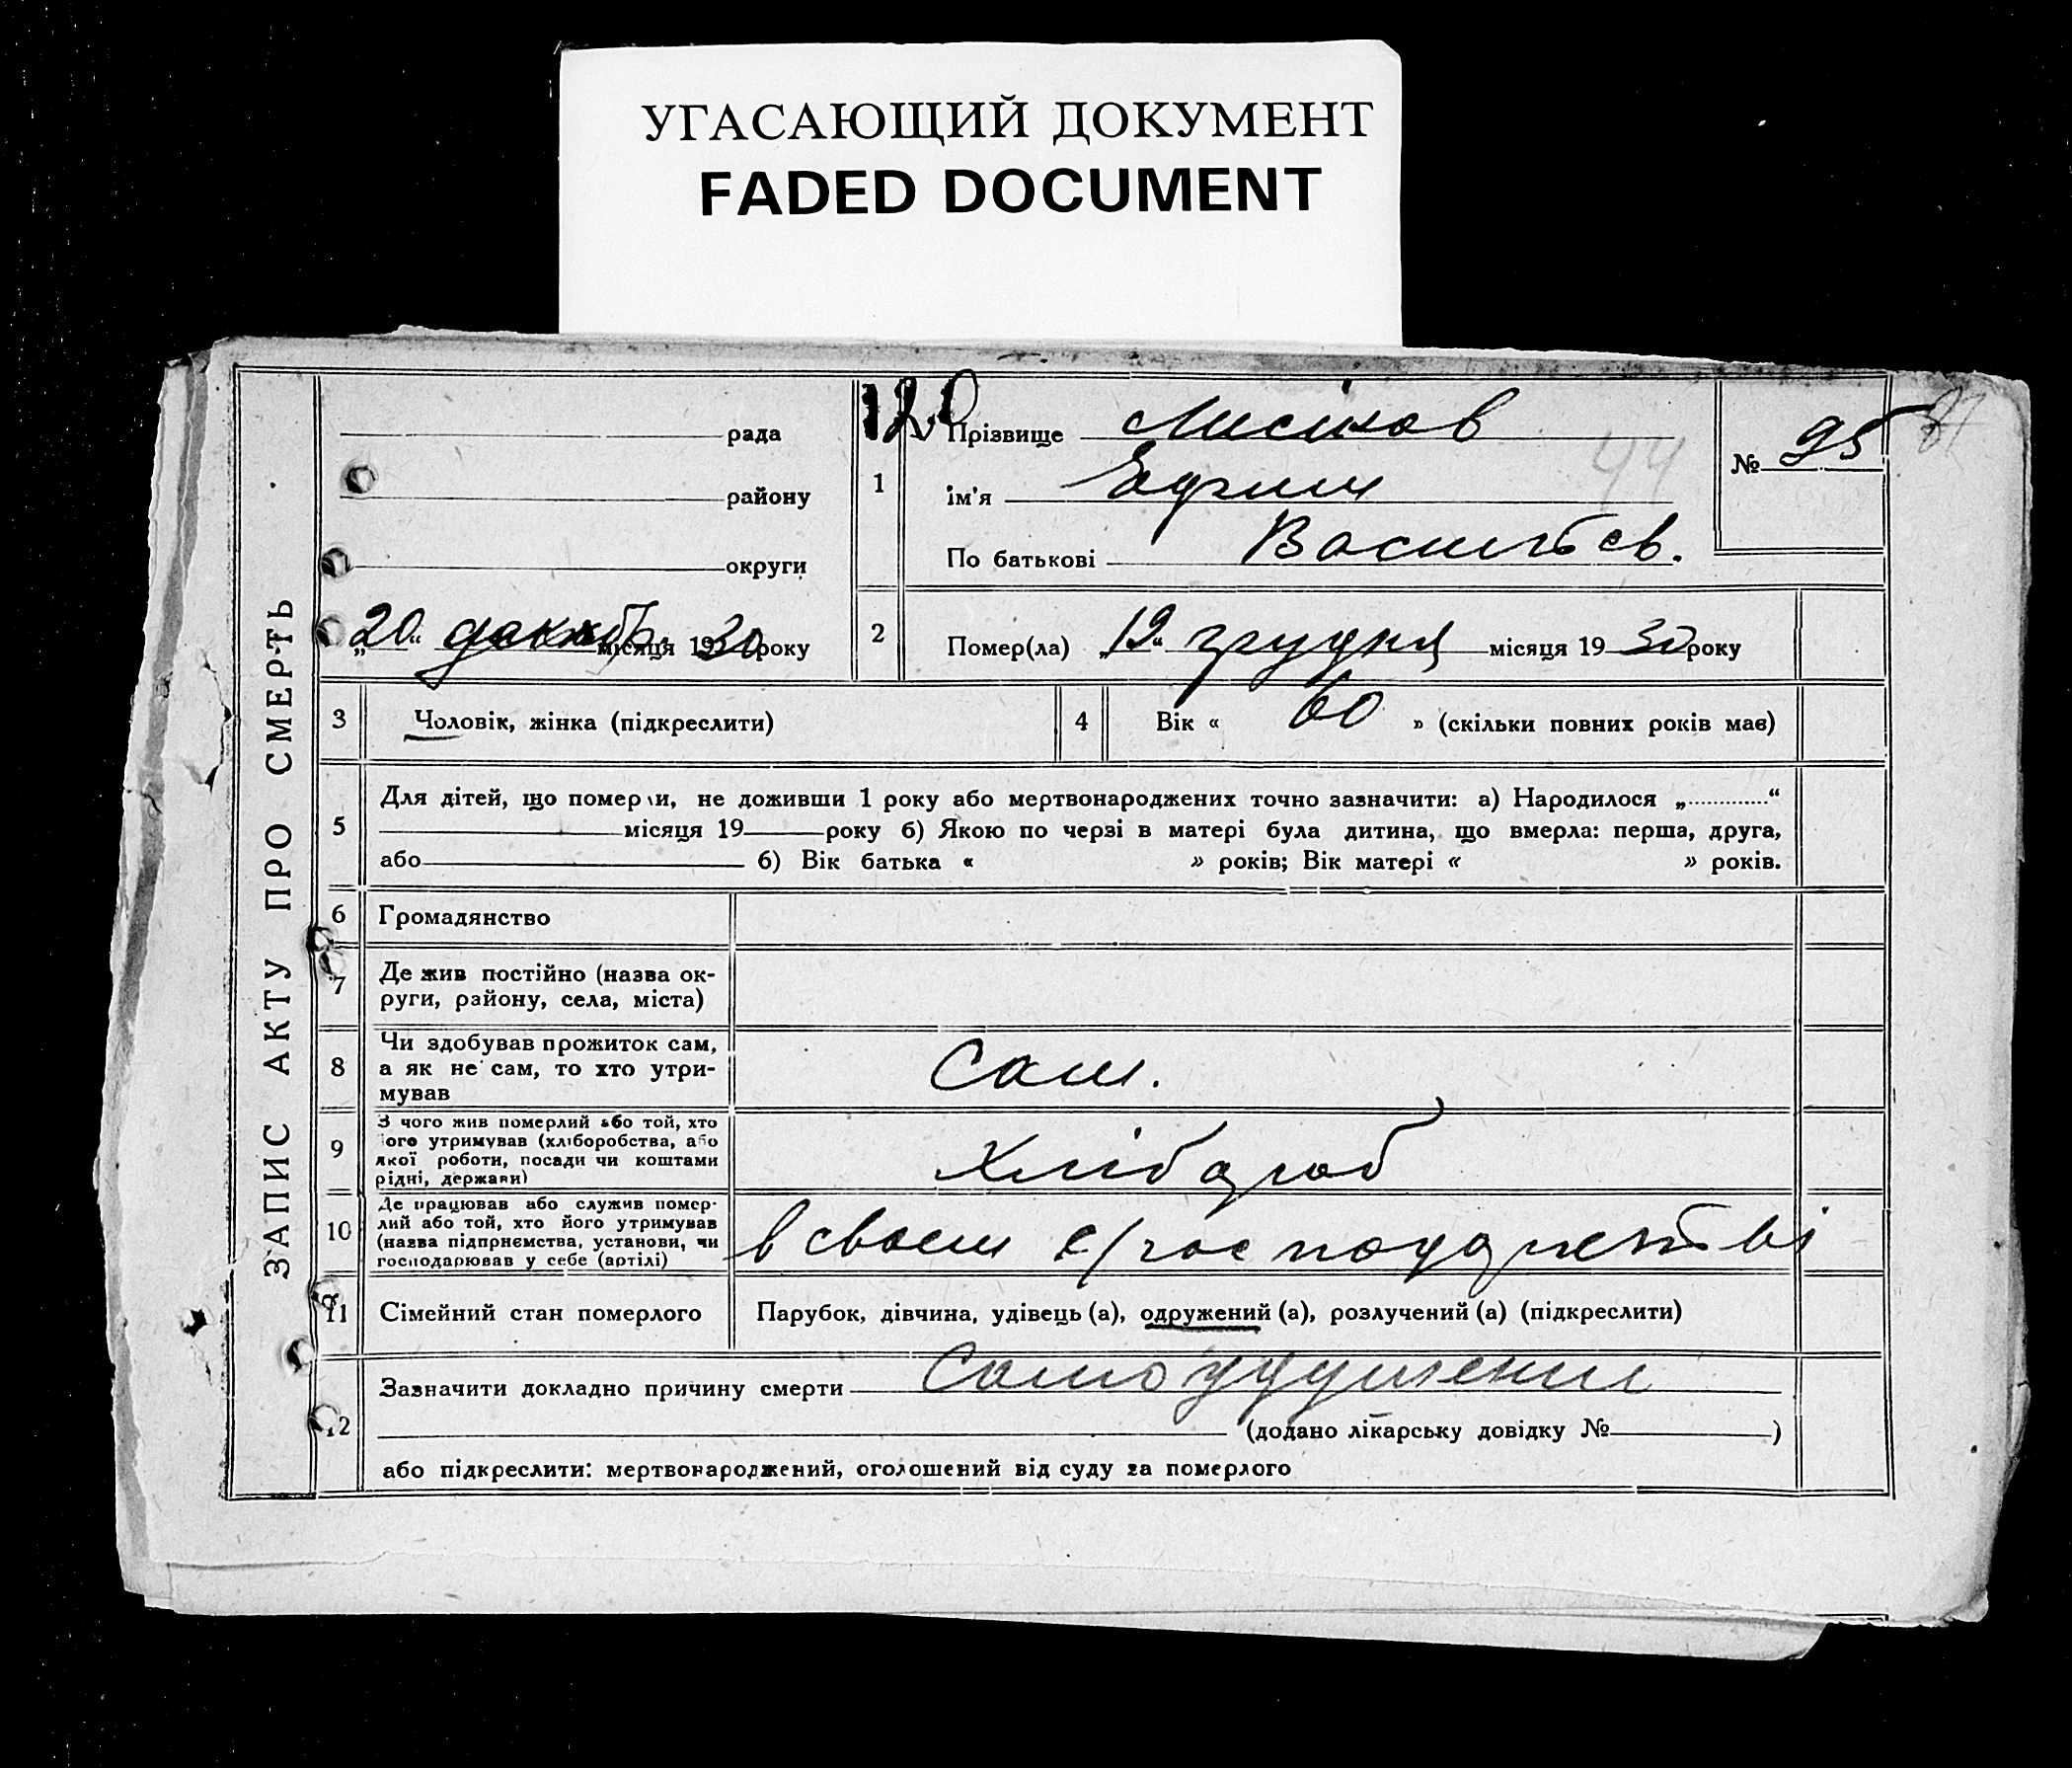 УГАСАЮЩИЙ ДОКУМЕНТ
FADED DOCUMENT
ЗАПИС АКТУ ПРО СМЕРТЬ
рада
району
округи
„20“ декабр. місяця 1930 року
120
1
Прізвище
ім'я Ефим
По батькові Васильев.
44
№ 95
81
2 Помер(ла) „19“ грудня місяця 1930 року
3 Чоловік, жінка (підкреслити)
4 Вік « 60 » (скільки повних років має)
5 Для дітей, що померли, не доживши 1 року або мертвонароджених точно зазначити: а) Народилося „ “
місяця 19 року б) Якою по черзі в матері була дитина, що вмерла: перша, друга,
або б) Вік батька « » років; Вік матері « » років.
6 Громадянство
7 Де жив постійно (назва ок-
руги, району, села, міста)
8 Чи здобував прожиток сам,
а як не сам, то хто утри-
мував
Сам.
9 З чого жив померлий або той, хто
його утримував (хліборобства, або
якої роботи, посади чи коштами
рідні, держави)
Хлібороб
10 Де працював або служив помер-
лий або той, хто його утримував
(назва підприємства, установи, чи
господарював у себе (артілі)
в своем с/господарстві
11 Сімейний стан померлого
Парубок, дівчина, удівець (а), одружений (а), розлучений (а) (підкреслити)
12 Зазначити докладно причину смерти Самоудушение
(додано лікарську довідку № )
або підкреслити: мертвонароджений, оголошений від суду за померлого